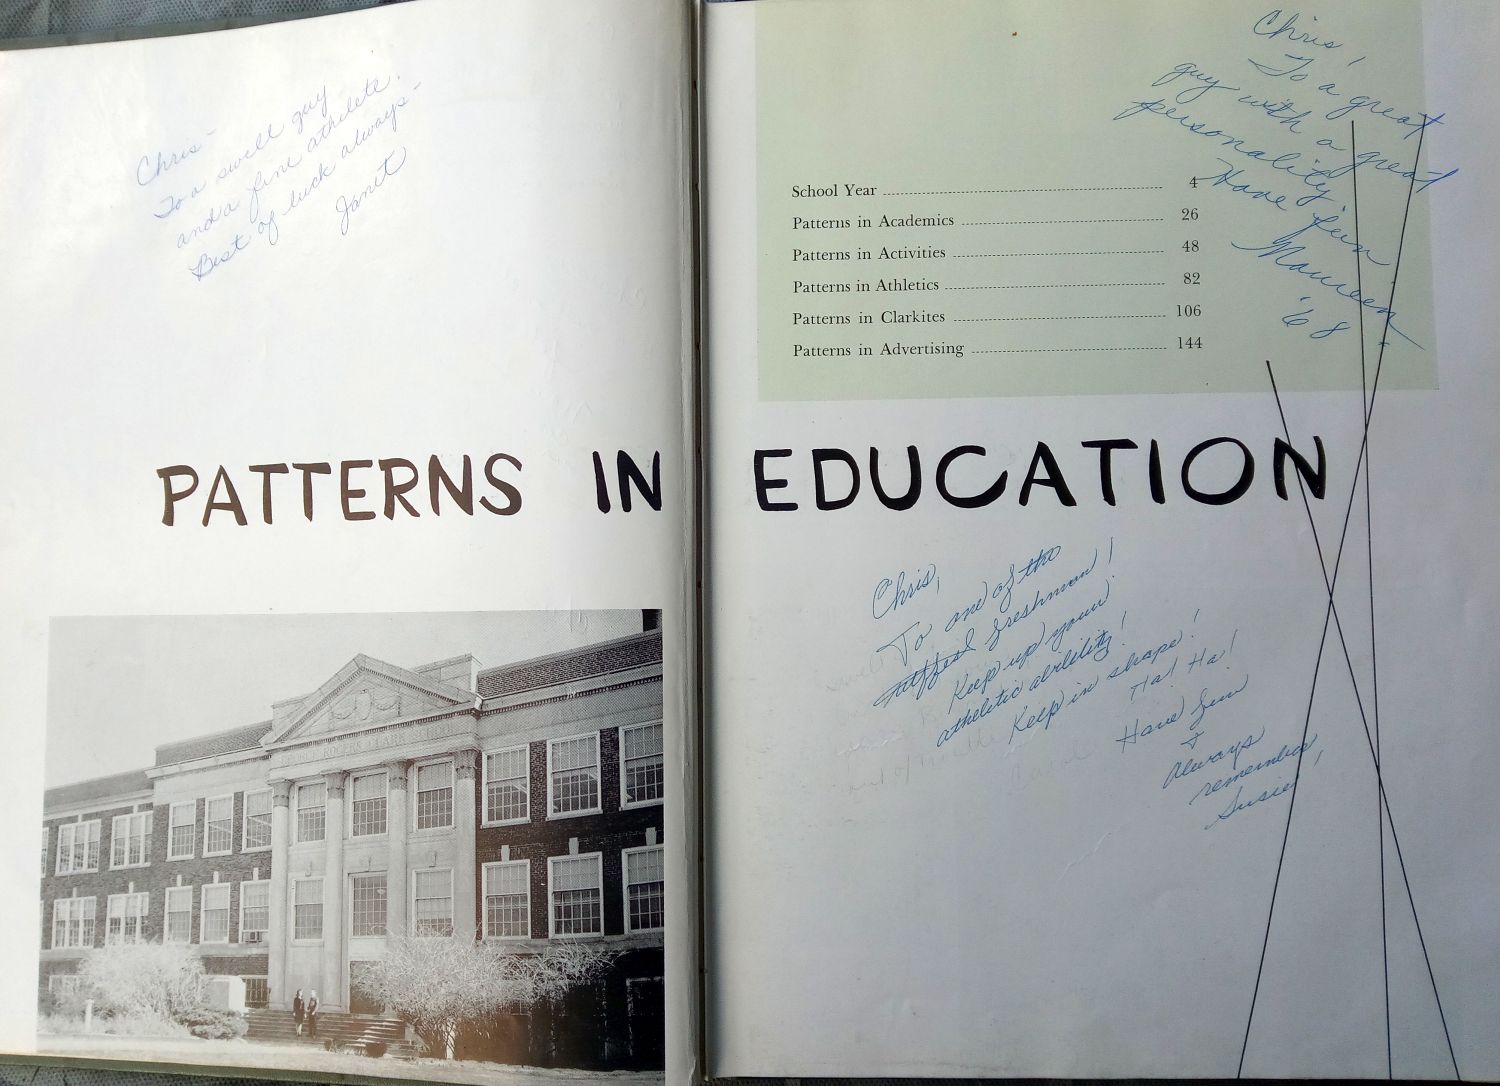 Chris -
To a swell guy
and a fine athelete.
Best of luck always -
Janet
Chris,
To a great
guy with a great
personality
Have fun
Maureen
'68
School Year 4
Patterns in Academics 26
Patterns in Activities 48
Patterns in Athletics 82
Patterns in Clarkites 106
Patterns in Advertising 144
PATTERNS IN EDUCATION
Chris,
To one of the
freshman!
Keep up your
athletic ability!
Keep in shape!
Ha! Ha!
Have fun
+
always
remember,
Susie!
ROGERS CLARK